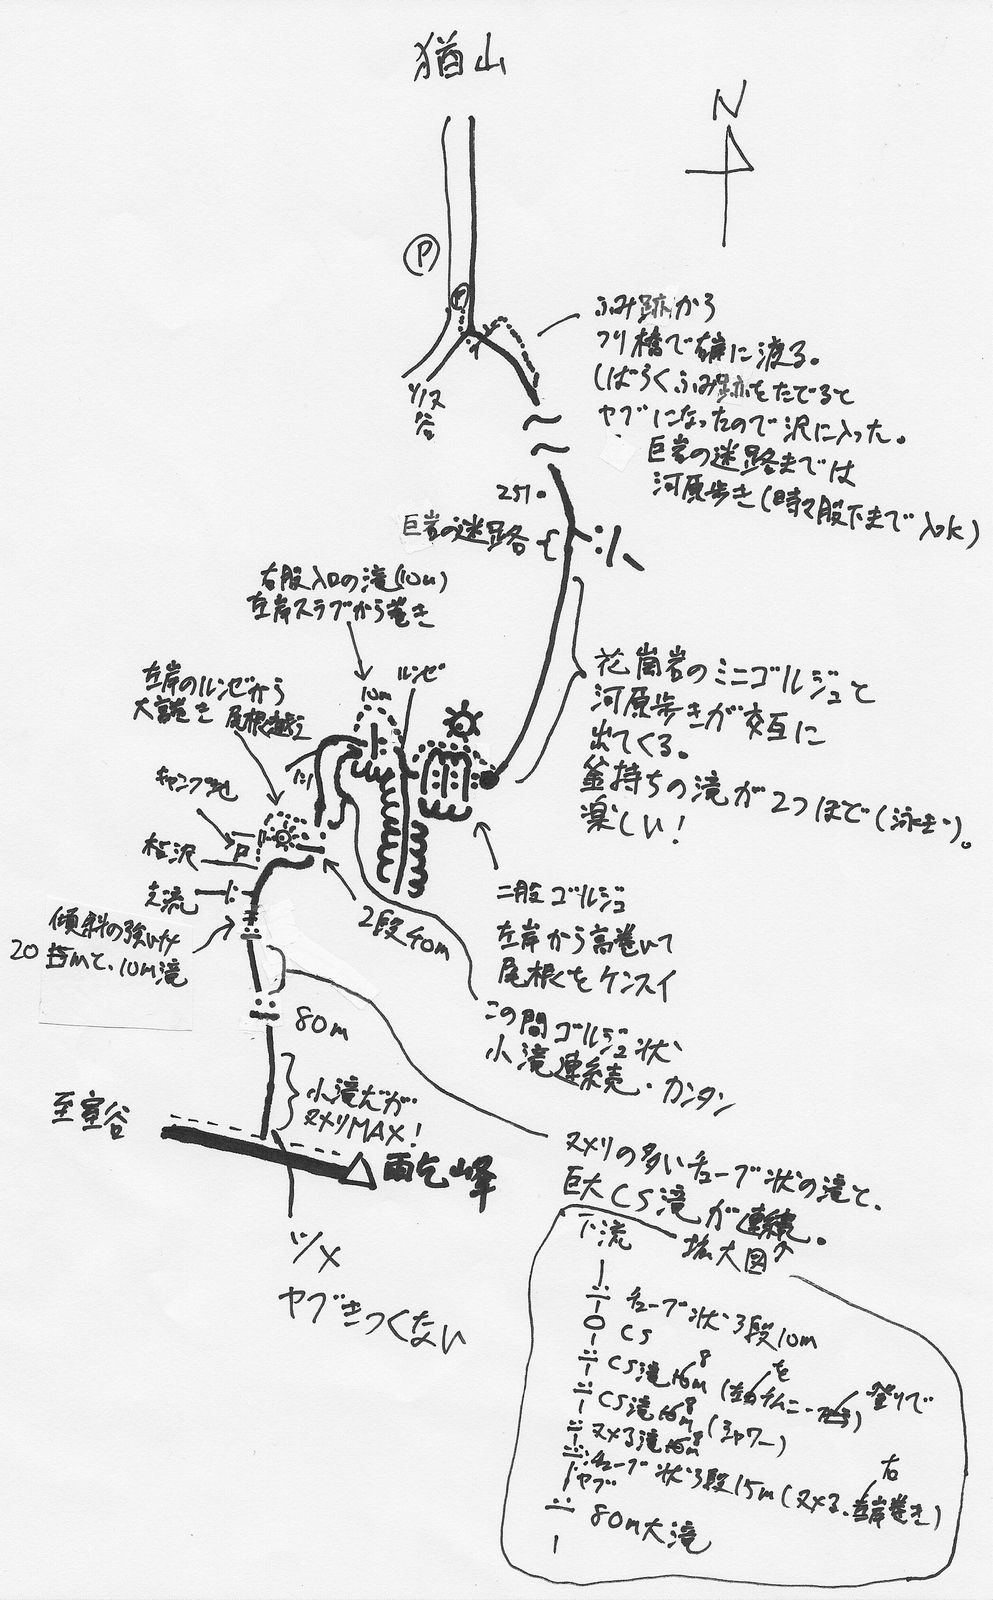 猶山
N
P
P
ふみ跡から
ツリ橋で右岸に渡る。
しばらくふみ跡をたどると
ヤブになったので沢に入った。
巨岩の迷路までは
河原歩き(時々股下まで入水)
ソリ又
谷
257.
巨岩の迷路
右股入口の滝(10m)
左岸スラブから巻き
ルンゼ
10m
左岸のルンゼから
大高巻き 尾根越え
花崗岩のミニゴルジュと
河原歩きが交互に
出てくる。
釜持ちの滝が2つほど(泳ぎ)。
楽しい!
キャンプ地
支流
傾斜の強い
10m滝
2段40m
二股ゴルジュ
左岸から高巻いて
尾根をケンスイ
80m
この間ゴルジュ状
小滝連続・カンタン
小滝だが
ヌメリMAX!
至室谷
雨乞峰
ヌメリの多いチューブ状の滝と、
巨大CS滝が連続。
拡大図
下流
ヤブきつくない
チューブ状3段10m
CS
CS滝 8m
登りで
CS滝 8m (シャワー)
ヌメる滝 8m
チューブ状3段15m(ヌメる、右岸巻き)
ヤブ
80m大滝